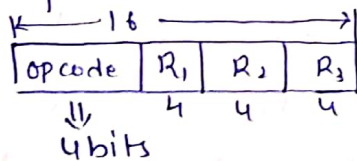 16
opcode R1 R2 R3
4 4 4
4 bits